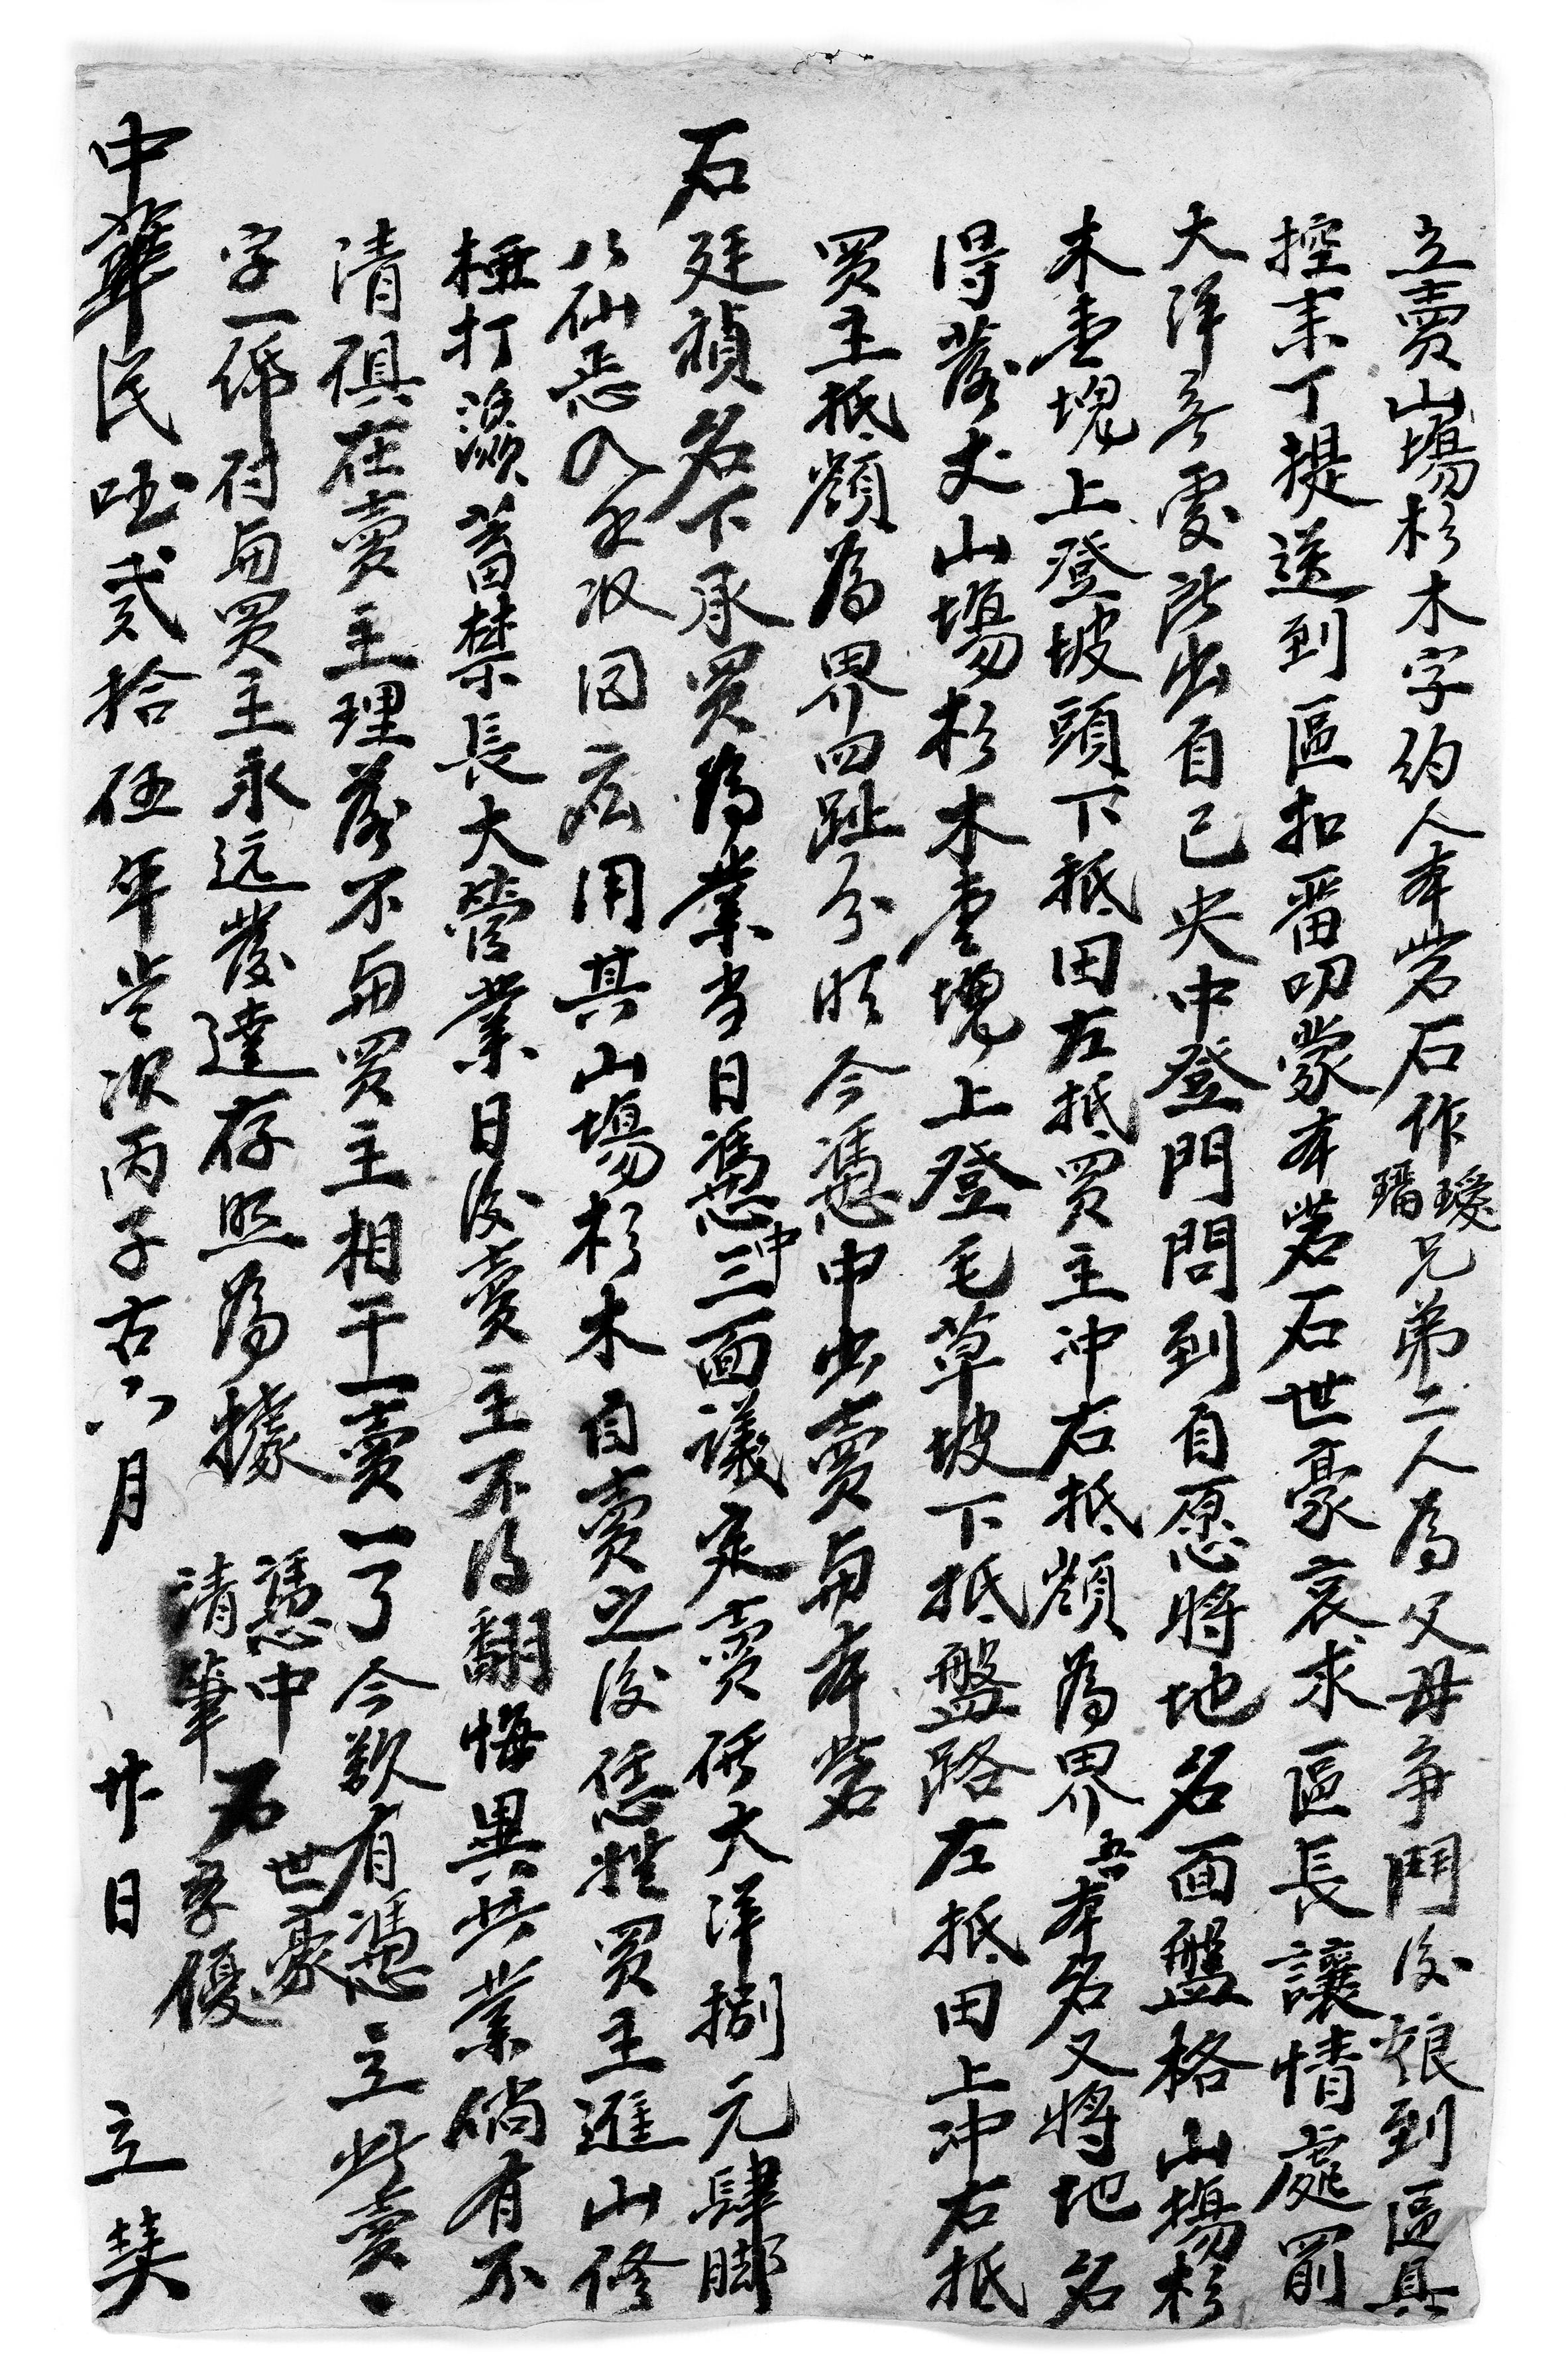 立賣山塲杉木字約人本砦石作璦瑨兄弟二人為父母争鬥後報到區具
控末丁提送到區扣畨叨蒙本砦石世豪哀求區長讓情處罰
大洋無處所出自己央中登門問到自愿將地名面盤格山塲杉
木壹塊上登坡頭下抵田左抵買主冲右抵嶺為界吾本名又將地名
得蒙丈山塲杉木壹塊上登毛草坡下抵盤路左抵田上冲右抵
買主抵嶺為界四趾分明今憑中出賣與本砦
石廷禎名下承買為業当日憑中三面議定賣價大洋捌元肆脚
八仙悉入手收回應用其山塲杉木自賣之後恁凴買主進山修
極打㵋蓄禁長大管業日後賣主不得翻悔異共業倘有不
清俱在賣主理落不與買主相干一賣一了今欲有憑立此賣
字一𥿄付與買主永远發達存照為據
憑中石世豪
清筆石孝優
中華民國貳拾伍年岁次丙子古六月廿日立契